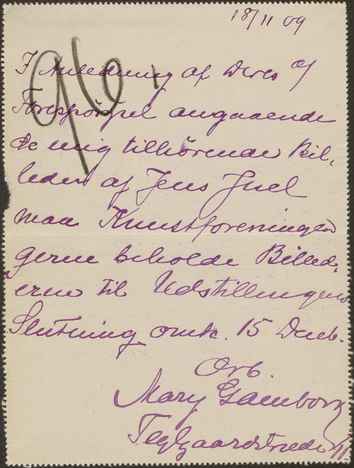 18/11 09
96.
I Anledning af Deres
Forespörgsel angaaende
de mig tilhörende Bil-
leder af Jens Juel
maa Kunstforeningen
gerne beholde Billed-
erne til Udstillingens
Slutning omk. 15 Decb.
Örb.
Mary Gamborg
Teglgaardstræde 11